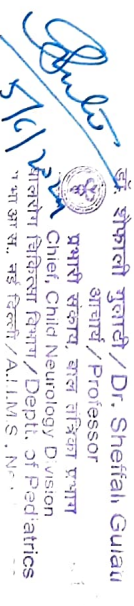 डॉ शेफाली गुलाटी/Dr. Sheffali Gulati
आचार्य/Professor
प्रभारी संकाय, बाल तंत्रिका प्रभाग
Chief, Child Neurology Division
बालरोग चिकित्सा विभाग/Deptt. of Pediatrics
नई दिल्ली/A.I.I.M.S., N